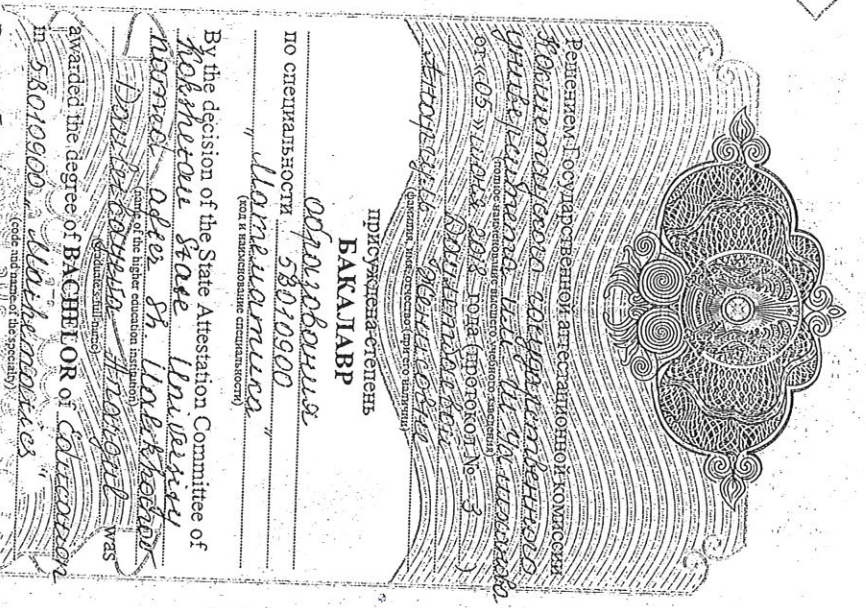 Решением Государственной аттестационной комиссии
Кокшетауского государственного
университета им. Ш. Уалиханова
(полное наименование высшего учебного заведения)
от «05» июня 2018 года (протокол № 3)
(фамилия, имя, отчество (при его наличии)
присуждена степень
БАКАЛАВР
образования
по специальности 5В010900
"Математика"
(код и наименование специальности)
By the decision of the State Attestation Committee of
Kokshetau State University
named after Sh. Ualikhanov
(name of the higher education institution)
was
(graduate's full name)
awarded the degree of BACHELOR of Education
in 5B010900 "Mathematics"
(code and name of the specialty)